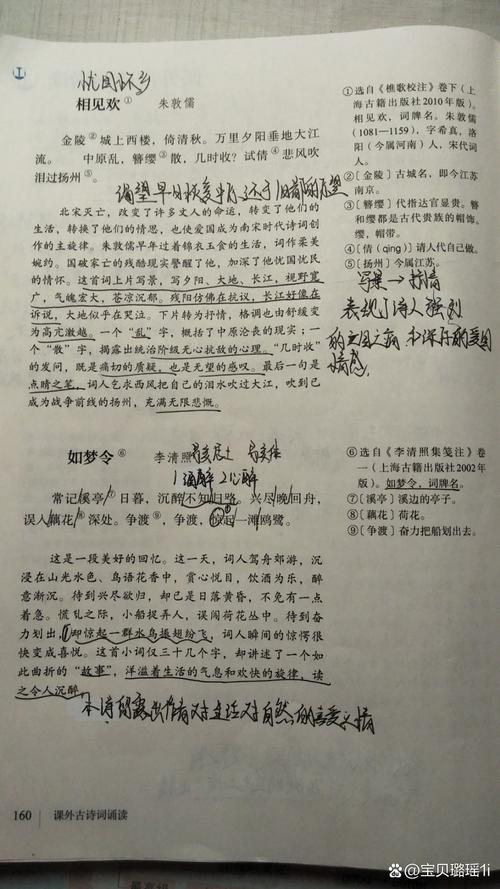 忧国怀乡
相见欢① 朱敦儒
金陵②城上西楼，倚清秋。万里夕阳垂地大江
流。 中原乱，簪缨③散，几时收？试倩④悲风吹
泪过扬州⑤。
渴望早日恢复中原，还于旧都的愿望
北宋灭亡，改变了许多文人的命运，转变了他们的
生活，转换了他们的情思，也使爱国成为南宋时代诗词创
作的主旋律。朱敦儒早年过着锦衣玉食的生活，词作柔美
婉约。国破家亡的残酷现实警醒了他，加深了他忧国忧民
的情怀。这首词上片写景，写夕阳、大地、长江，视野宽
广，气魄宏大，苍凉沉郁。残阳仿佛在抗议，长江好像在
诉说，大地似乎在哭泣。下片转为抒情，格调也由舒缓变
为高亢激越。一个“乱”字，概括了中原沦丧的现实；一
个“散”字，揭露出统治阶级无心抗敌的心理。“几时收”
的发问，既是痛切的质疑，也是无望的感叹。最后一句是
点睛之笔，词人乞求西风把自己的泪水吹过大江，吹到已
成为战争前线的扬州，充满无限悲慨。
①选自《樵歌校注》卷下（上
海古籍出版社2010年版）。
相见欢，词牌名。朱敦儒
（1081—1159），字希真，洛
阳（今属河南）人，宋代词
人。
②〔金陵〕古城名，即今江苏
南京。
③〔簪缨〕代指达官显贵。簪
和缨都是古代贵族的帽饰。
缨，帽带。
④〔倩（qìng）〕请人代自己做。
⑤〔扬州〕今属江苏。
写景→抒情
表现了诗人强烈
的亡国之痛和深厚的爱国
情感
如梦令⑥ 李清照 易安居士 易安体
1酒醉 2心醉
常记溪亭⑦日暮，沉醉不知归路。兴尽晚回舟，
误入藕花⑧深处。争渡⑨，争渡，惊起一滩鸥鹭。
这是一段美好的回忆。这一天，词人驾舟郊游，沉
浸在山光水色、鸟语花香中，赏心悦目，饮酒为乐，醉
意渐沉。待到兴尽欲归，却已是日落黄昏，不免有一点
着急。慌乱之际，小船捉弄人，误闯荷花丛中。待到奋
力划出，却惊起一群水鸟振翅纷飞，词人瞬间的惊愕很
快变成喜悦。这首小词仅三十几个字，却讲述了一个如
此曲折的“故事”，洋溢着生活的气息和欢快的旋律，读
之令人沉醉。
本诗的露出作者对生活对自然的喜爱之情
⑥选自《李清照集笺注》卷
一（上海古籍出版社2002年
版）。如梦令，词牌名。
⑦〔溪亭〕溪边的亭子。
⑧〔藕花〕荷花。
⑨〔争渡〕奋力把船划出去。
160 课外古诗词诵读
@宝贝璐瑶1i